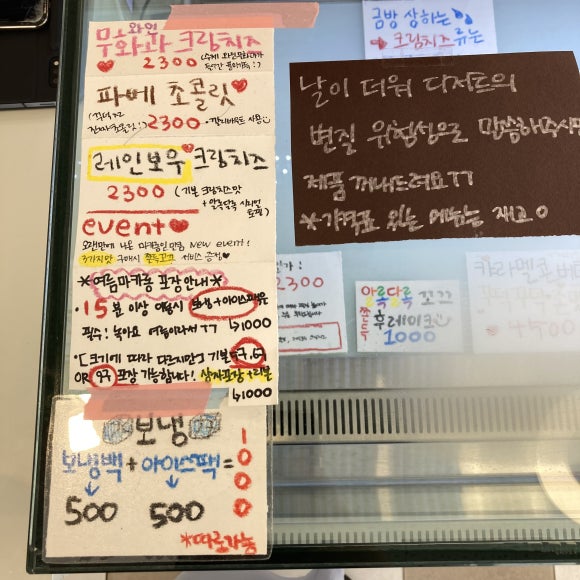 와인
무화과 크림치즈
2300
파베 초콜릿
2300
레인보우 크림치즈
2300 (기본 크림치즈맛
+ 알록달록 시리얼
토핑)
event
3가지맛 구매시 쫀득꼬끄 서비스 증정
*여름 마카롱 포장 안내*
•15분 이상 이동시 보냉+아이스팩유
필수! 녹아요 여름이라서 ㅠㅠ ↳1000
•[크기에 따라 다르지만] 기본 +7,5구
OR 9구 포장 가능합니다! 상자포장+리본
↳1000
보냉
보냉백 + 아이스팩 = 1000
500 500
*따로가능
금방 상하는
→ 크림치즈 류는
날이 더워 디저트의
변질 위험성으로 말씀해주시면
제품 꺼내드려요ㅠㅠ
*가격표 있는 메뉴는 재고 O
2300
알록달록 꼬끄
후레이크
1000